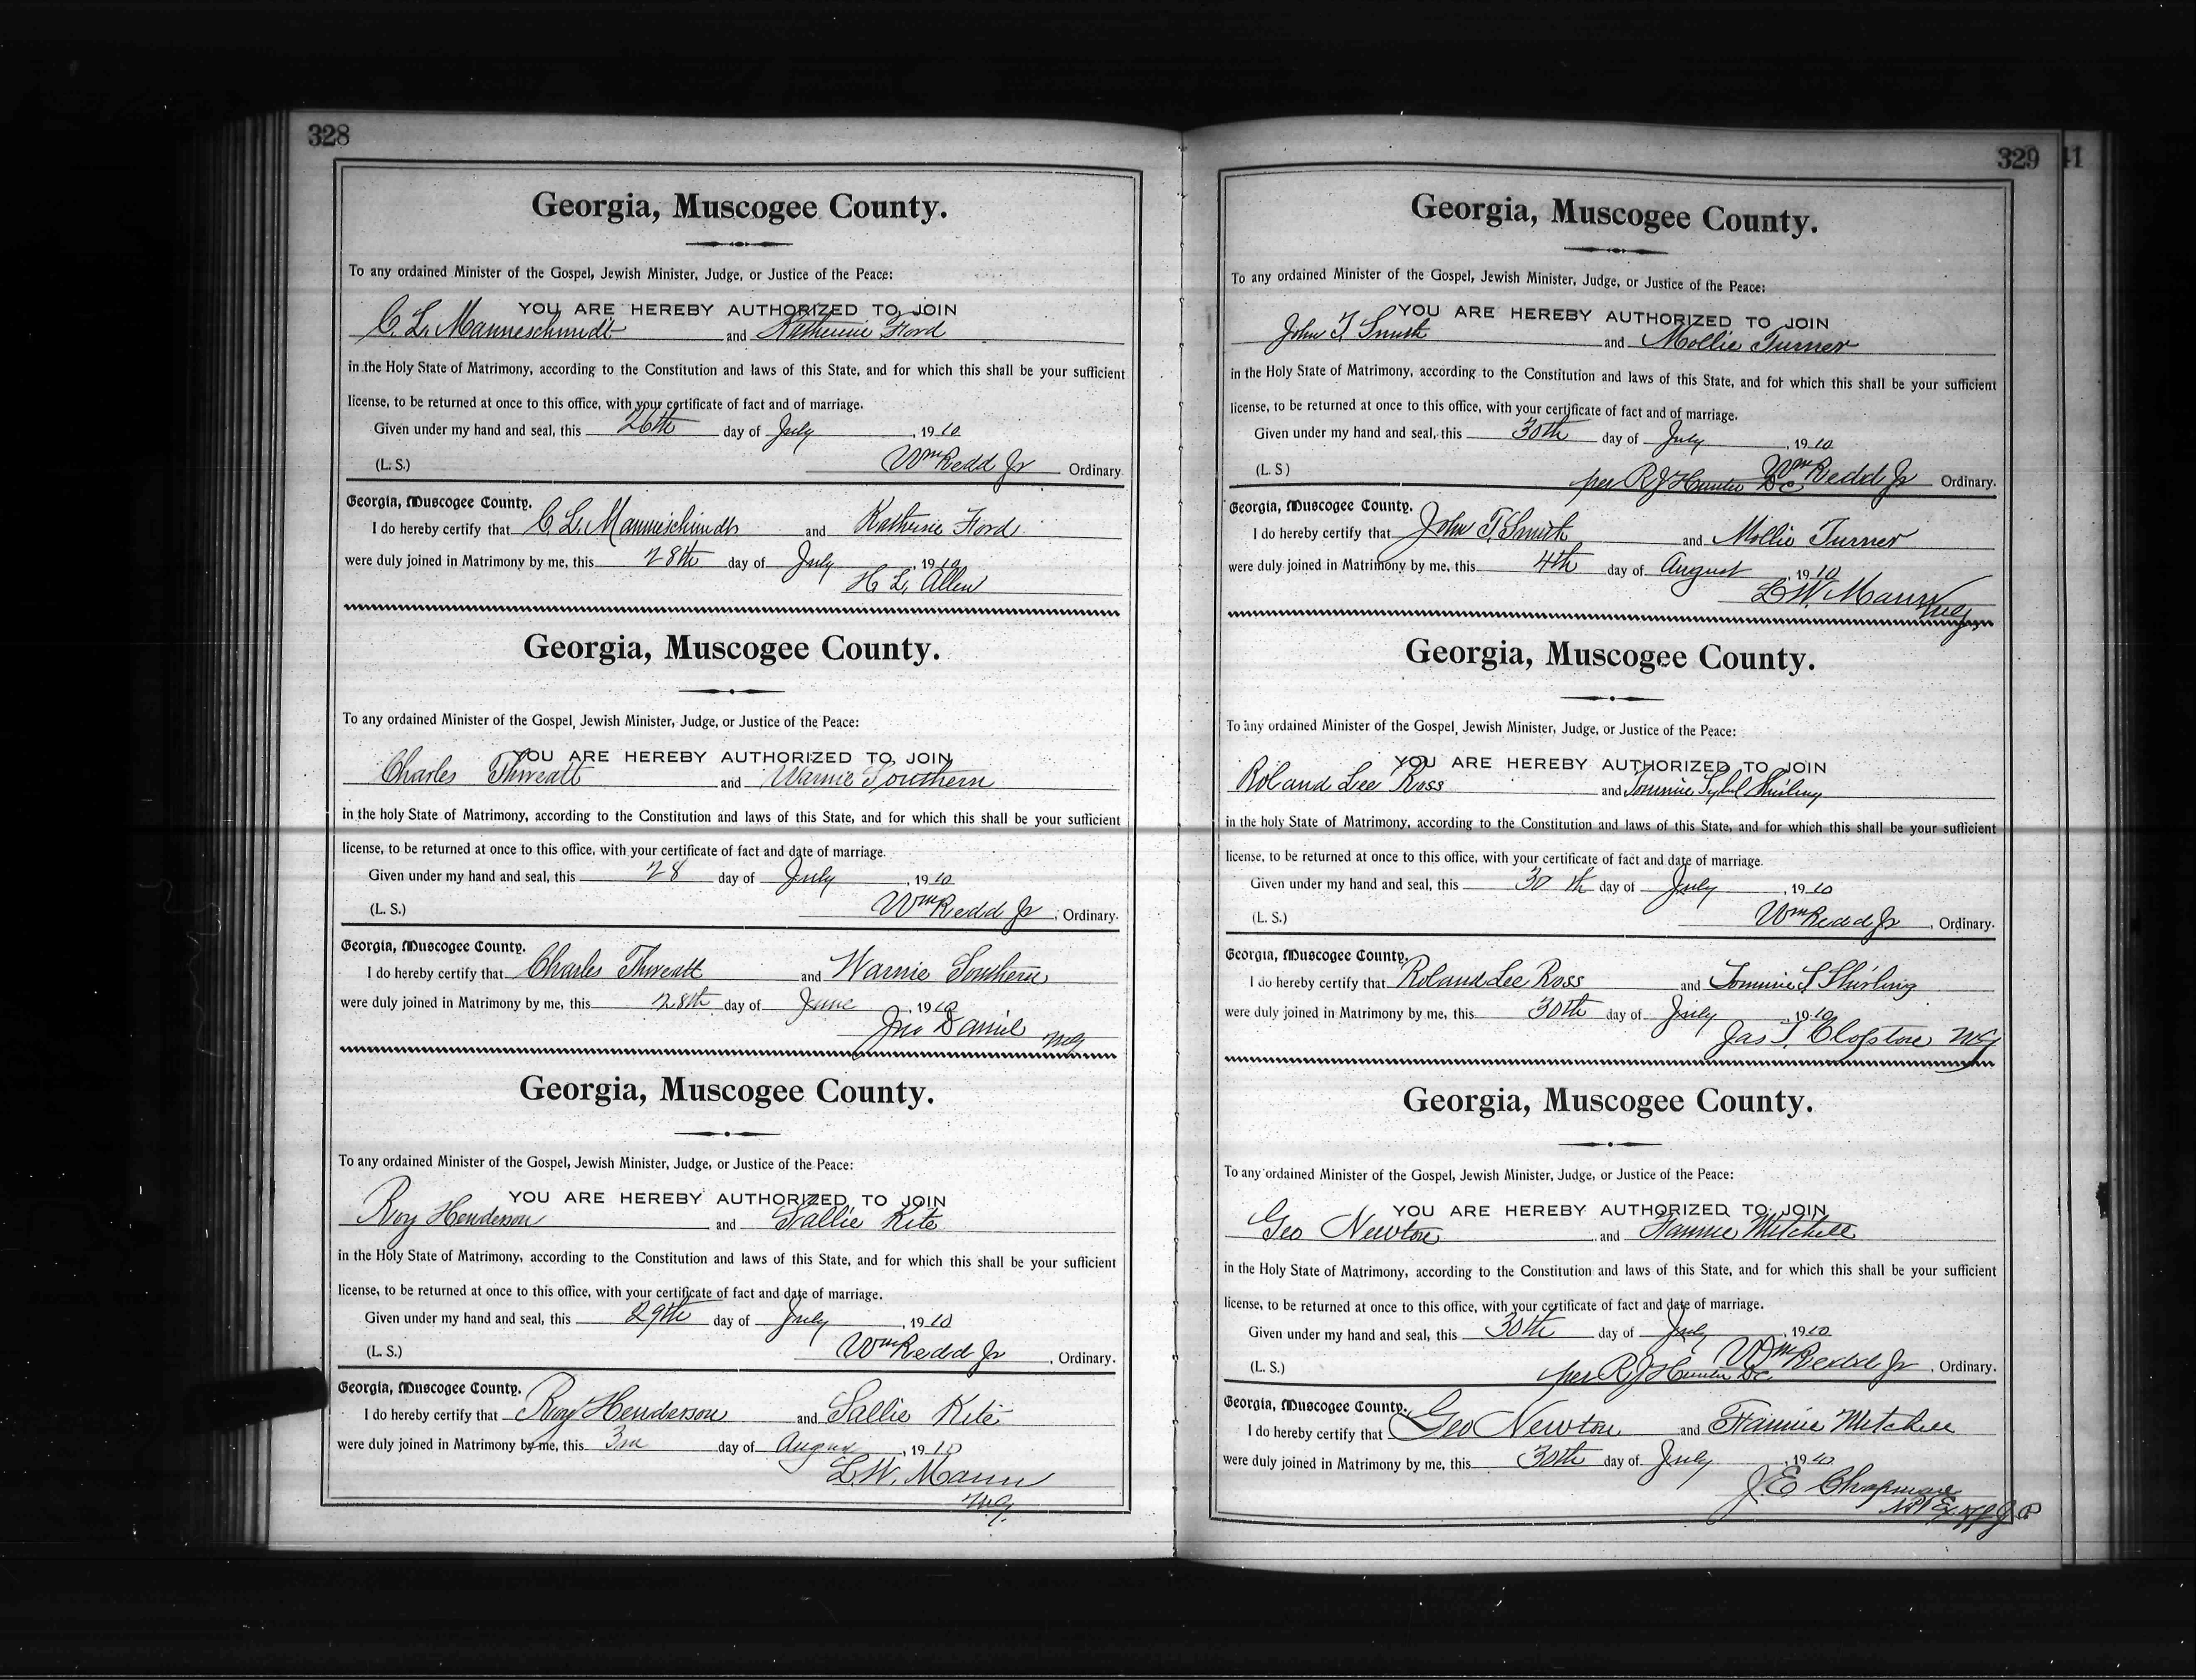 328
Georgia, Muscogee County.
To any ordained Minister of the Gospel, Jewish Minister, Judge, or Justice of the Peace:
YOU ARE HEREBY AUTHORIZED TO JOIN
C. L. Manneschmidt and Katherine Ford
in the Holy State of Matrimony, according to the Constitution and laws of this State, and for which this shall be your sufficient
license, to be returned at once to this office, with your certificate of fact and of marriage.
Given under my hand and seal, this 26th day of July, 1910
(L. S.) Wm Redd Jr Ordinary
Georgia, Muscogee County.
I do hereby certify that C. L. Manneschmidt and Katherine Ford
were duly joined in Matrimony by me, this 28th day of July, 1910
H. L. Allen
Georgia, Muscogee County.
To any ordained Minister of the Gospel, Jewish Minister, Judge, or Justice of the Peace:
YOU ARE HEREBY AUTHORIZED TO JOIN
Charles Threatt and Warnie Southern
in the holy State of Matrimony, according to the Constitution and laws of this State, and for which this shall be your sufficient
license, to be returned at once to this office, with your certificate of fact and date of marriage.
Given under my hand and seal, this 28 day of July, 1910
(L. S.) Wm Redd Jr, Ordinary.
Georgia, Muscogee County.
I do hereby certify that Charles Threatt and Warnie Southern
were duly joined in Matrimony by me, this 28th day of June, 1910
Jno Daniel MG
Georgia, Muscogee County.
To any ordained Minister of the Gospel, Jewish Minister, Judge, or Justice of the Peace:
YOU ARE HEREBY AUTHORIZED TO JOIN
Roy Henderson and Sallie Kite
in the Holy State of Matrimony, according to the Constitution and laws of this State, and for which this shall be your sufficient
license, to be returned at once to this office, with your certificate of fact and date of marriage.
Given under my hand and seal, this 29th day of July, 1910
(L. S.) Wm Redd Jr, Ordinary.
Georgia, Muscogee County.
I do hereby certify that Roy Henderson and Sallie Kite
were duly joined in Matrimony by me, this 3rd day of August, 1910
L. W. Mann
M.G.
329 41
Georgia, Muscogee County.
To any ordained Minister of the Gospel, Jewish Minister, Judge, or Justice of the Peace:
YOU ARE HEREBY AUTHORIZED TO JOIN
John T Smith and Mollie Turner
in the Holy State of Matrimony, according to the Constitution and laws of this State, and for which this shall be your sufficient
license, to be returned at once to this office, with your certificate of fact and of marriage.
Given under my hand and seal, this 30th day of July, 1910
(L. S) Wm Redd Jr Ordinary.
per R J Hunter DC
Georgia, Muscogee County.
I do hereby certify that John T. Smith and Mollie Turner
were duly joined in Matrimony by me, this 4th day of August, 1910
L. W. Mann MG
Georgia, Muscogee County.
To any ordained Minister of the Gospel, Jewish Minister, Judge, or Justice of the Peace:
YOU ARE HEREBY AUTHORIZED TO JOIN
Roland Lee Ross and Tommie Sybil Shirling
in the holy State of Matrimony, according to the Constitution and laws of this State, and for which this shall be your sufficient
license, to be returned at once to this office, with your certificate of fact and date of marriage.
Given under my hand and seal, this 30th day of July, 1910
(L. S.) Wm Redd Jr, Ordinary.
Georgia, Muscogee County.
I do hereby certify that Roland Lee Ross and Tommie S Shirling
were duly joined in Matrimony by me, this 30th day of July, 1910
Jas T. MG
Georgia, Muscogee County.
To any ordained Minister of the Gospel, Jewish Minister, Judge, or Justice of the Peace:
YOU ARE HEREBY AUTHORIZED TO JOIN
Geo Newton and Fannie Mitchell
in the Holy State of Matrimony, according to the Constitution and laws of this State, and for which this shall be your sufficient
license, to be returned at once to this office, with your certificate of fact and date of marriage.
Given under my hand and seal, this 30th day of July, 1910
(L. S.) Wm Redd Jr, Ordinary.
per R J Hunter DC
Georgia, Muscogee County.
I do hereby certify that Geo Newton and Fannie Mitchell
were duly joined in Matrimony by me, this 30th day of July, 1910
J. E. Chapman
J P